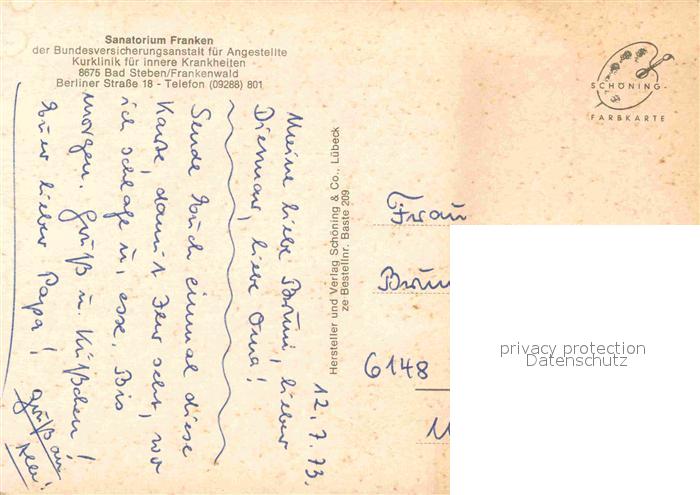 Sanatorium Franken
der Bundesversicherungsanstalt für Angestellte
Kurklinik für innere Krankheiten
8675 Bad Steben/Frankenwald
Berliner Straße 18 - Telefon (09288) 801
SCHÖNING-
FARBKARTE
12.7.73.
Meine liebe Bruni, lieber
Dietmar, liebe Oma!
Sende Euch einmal diese
Karte, damit Ihr seht, wo
ich schlafe u. esse. Bis
morgen. Gruß u. Küßchen!
Euer lieber Papa!
Gruß an
Alle!
Hersteller und Verlag Schöning & Co., Lübeck
ze Bestellnr. Baste 209
Frau
Brun
6148
privacy protection
Datenschutz